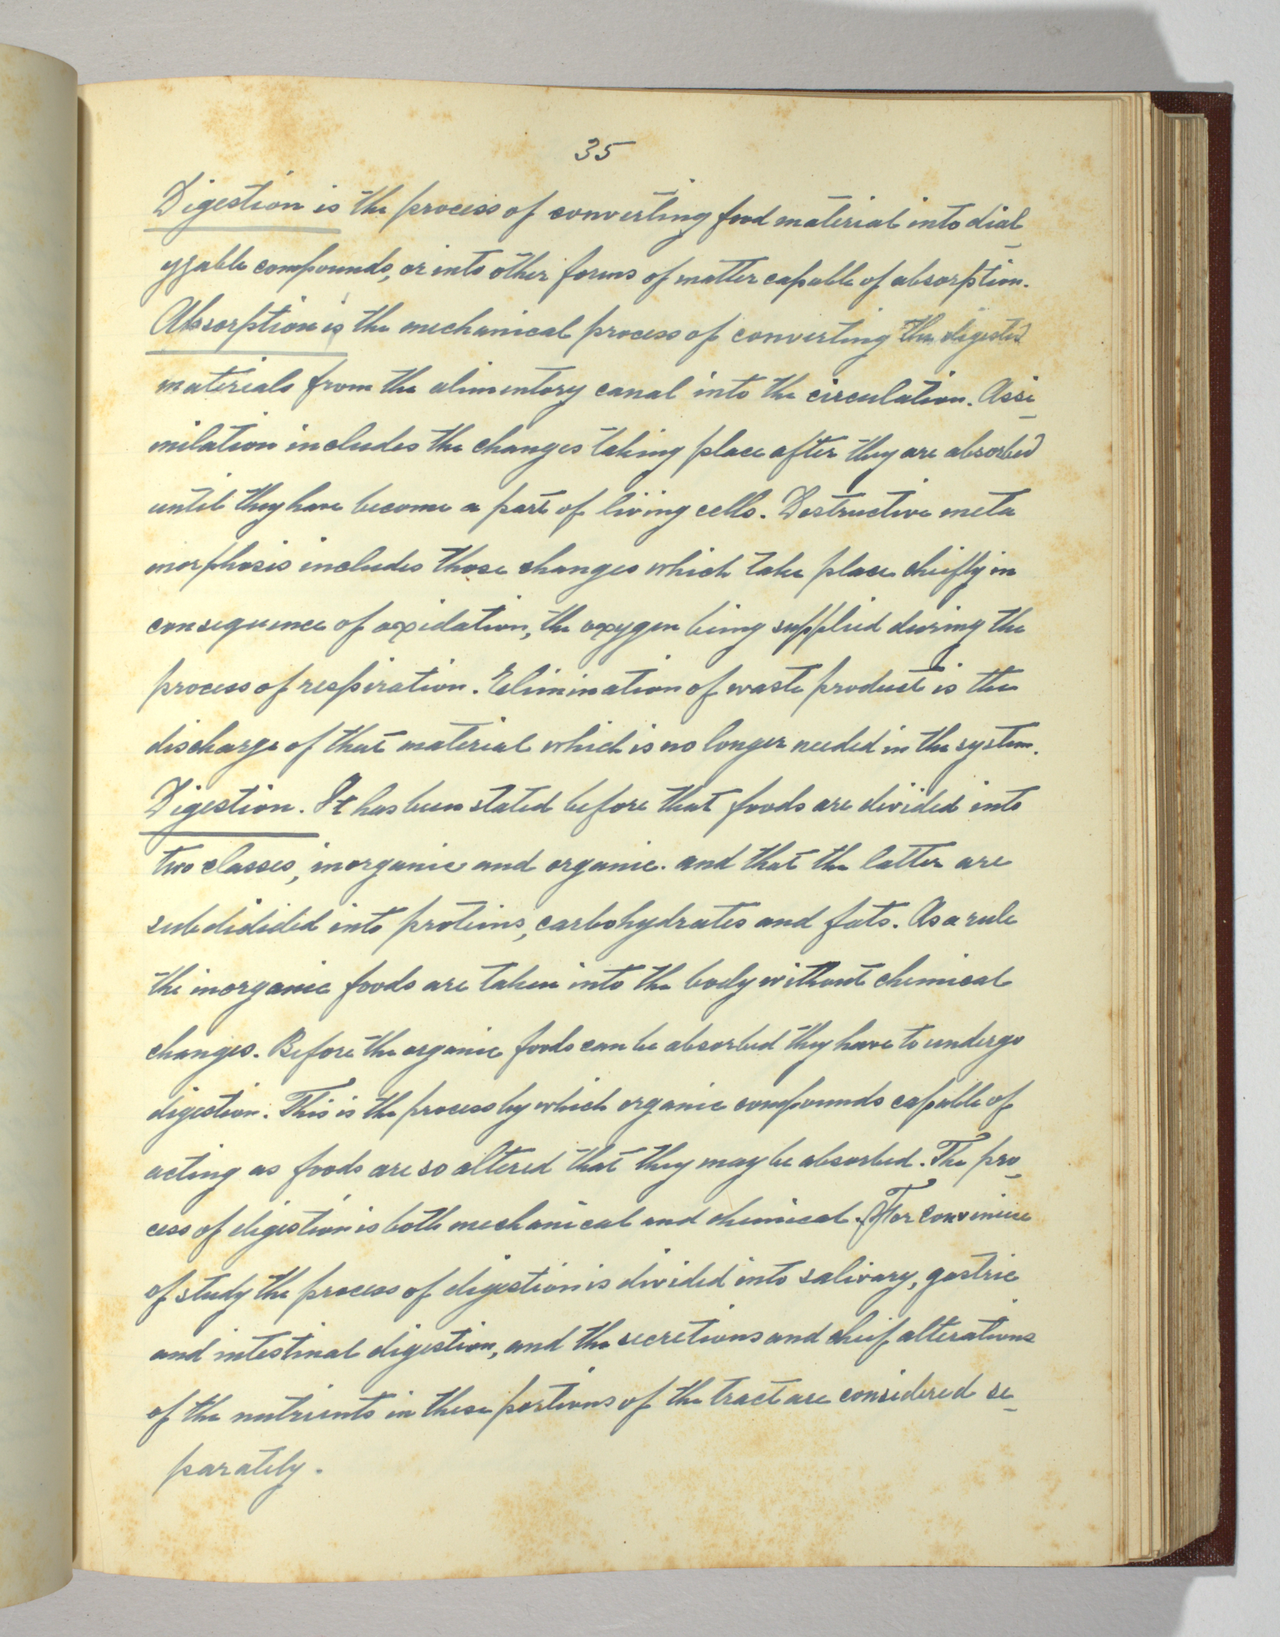 35
Digestion is the process of converting food material into dial-
yzable compounds, or into other forms of matter capable of absorption.
Absorption is the mechanical process of converting the digested
materials from the alimentary canal into the circulation. Assi-
milation includes the changes taking place after they are absorbed
until they have become a part of living cells. Destructive meta
morphosis includes those changes which take place chiefly in
consequence of oxidation, the oxygen being supplied during the
process of respiration. Elimination of waste product is the
discharge of that material which is no longer needed in the system.
Digestion. It has been stated before that foods are divided into
two classes, inorganic and organic. and that the latter are
subdidided into proteins, carbohydrates and fats. As a rule
the inorganic foods are taken into the body without chemical
changes. Before the organic foods can be absorbed they have to undergo
digestion. This is the process by which organic compounds capable of
acting as foods are so altered that they may be absorbed. The pro-
cess of digestion is both mechanical and chemical. For convinice
of study the process of digestion is divided into salivary, gastric
and intestinal digestion, and the secretions and cheif alterations
of the nutrients in these portions of the tract are considered se-
parately.